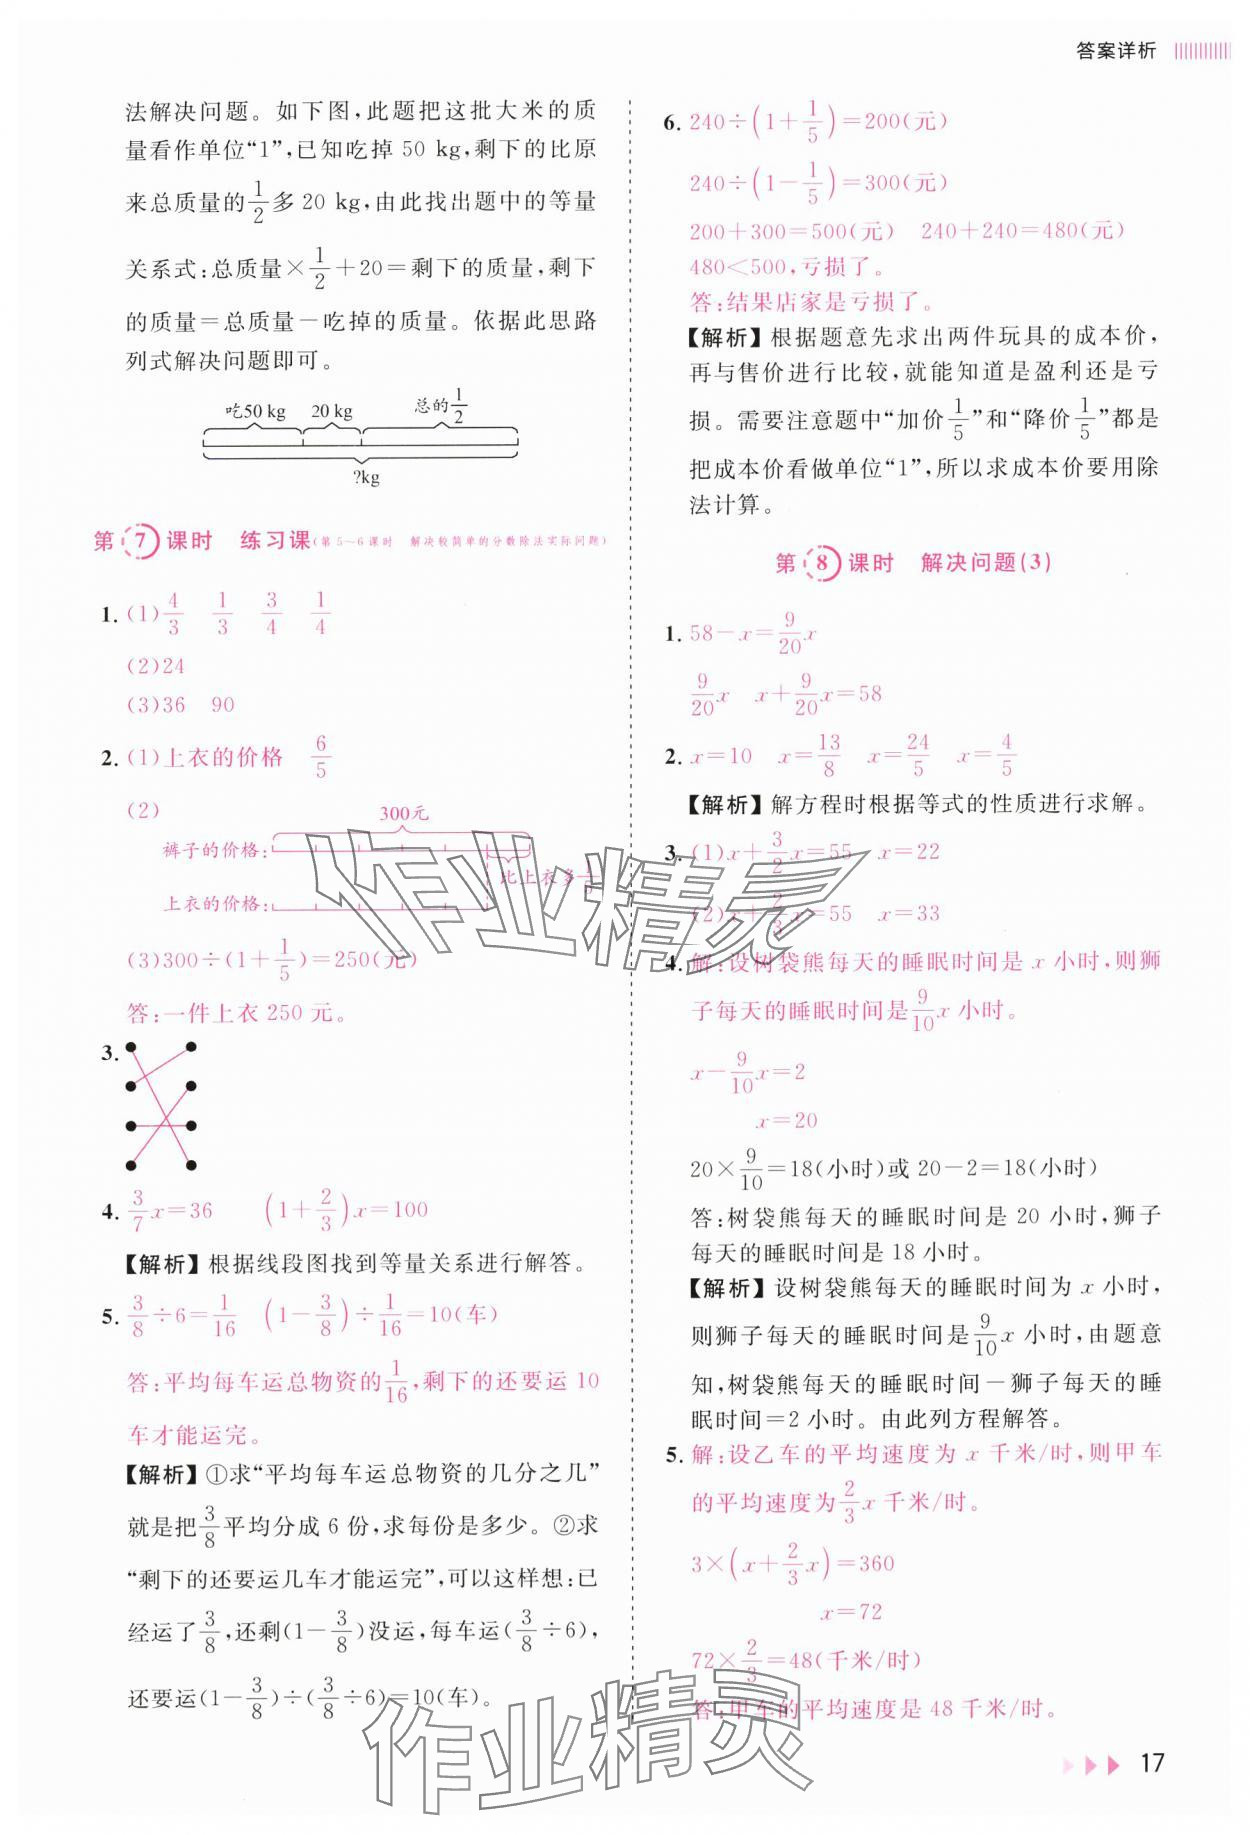 答案详析
法解决问题。如下图,此题把这批大米的质
量看作单位“1”,已知吃掉 50 kg,剩下的比原
来总质量的1/2多 20 kg,由此找出题中的等量
关系式:总质量×1/2+20=剩下的质量,剩下
的质量=总质量-吃掉的质量。依据此思路
列式解决问题即可。
吃50 kg 20 kg 总的1/2
?kg
第7课时 练习课(第5~6课时 解决较简单的分数除法实际问题)
1. (1)4/3 1/3 3/4 1/4
(2)24
(3)36 90
2. (1)上衣的价格 6/5
(2)
300元
裤子的价格:
比上衣多1/5
上衣的价格:
(3)300÷(1+1/5)=250(元)
答:一件上衣 250 元。
3.
4. 3/7x=36 (1+2/3)x=100
【解析】根据线段图找到等量关系进行解答。
5. 3/8÷6=1/16 (1-3/8)÷1/16=10(车)
答:平均每车运总物资的1/16,剩下的还要运 10
车才能运完。
【解析】①求“平均每车运总物资的几分之几”
就是把3/8平均分成 6 份,求每份是多少。②求
“剩下的还要运几车才能运完”,可以这样想:已
经运了3/8,还剩(1-3/8)没运,每车运(3/8÷6),
还要运(1-3/8)÷(3/8÷6)=10(车)。
6. 240÷(1+1/5)=200(元)
240÷(1-1/5)=300(元)
200+300=500(元) 240+240=480(元)
480<500,亏损了。
答:结果店家是亏损了。
【解析】根据题意先求出两件玩具的成本价,
再与售价进行比较,就能知道是盈利还是亏
损。需要注意题中“加价1/5”和“降价1/5”都是
把成本价看做单位“1”,所以求成本价要用除
法计算。
第8课时 解决问题(3)
1. 58-x=9/20x
9/20x x+9/20x=58
2. x=10 x=13/8 x=24/5 x=4/5
【解析】解方程时根据等式的性质进行求解。
3. (1)x+3/2x=55 x=22
(2)x+2/3x=55 x=33
4. 解:设树袋熊每天的睡眠时间是 x 小时,则狮
子每天的睡眠时间是9/10x 小时。
x-9/10x=2
x=20
20×9/10=18(小时)或 20-2=18(小时)
答:树袋熊每天的睡眠时间是 20 小时,狮子
每天的睡眠时间是 18 小时。
【解析】设树袋熊每天的睡眠时间为 x 小时,
则狮子每天的睡眠时间是9/10x 小时,由题意
知,树袋熊每天的睡眠时间-狮子每天的睡
眠时间=2 小时。由此列方程解答。
5. 解:设乙车的平均速度为 x 千米/时,则甲车
的平均速度为2/3x 千米/时。
3×(x+2/3x)=360
x=72
72×2/3=48(千米/时)
答:甲车的平均速度是 48 千米/时。
17
作业精灵
作业精灵